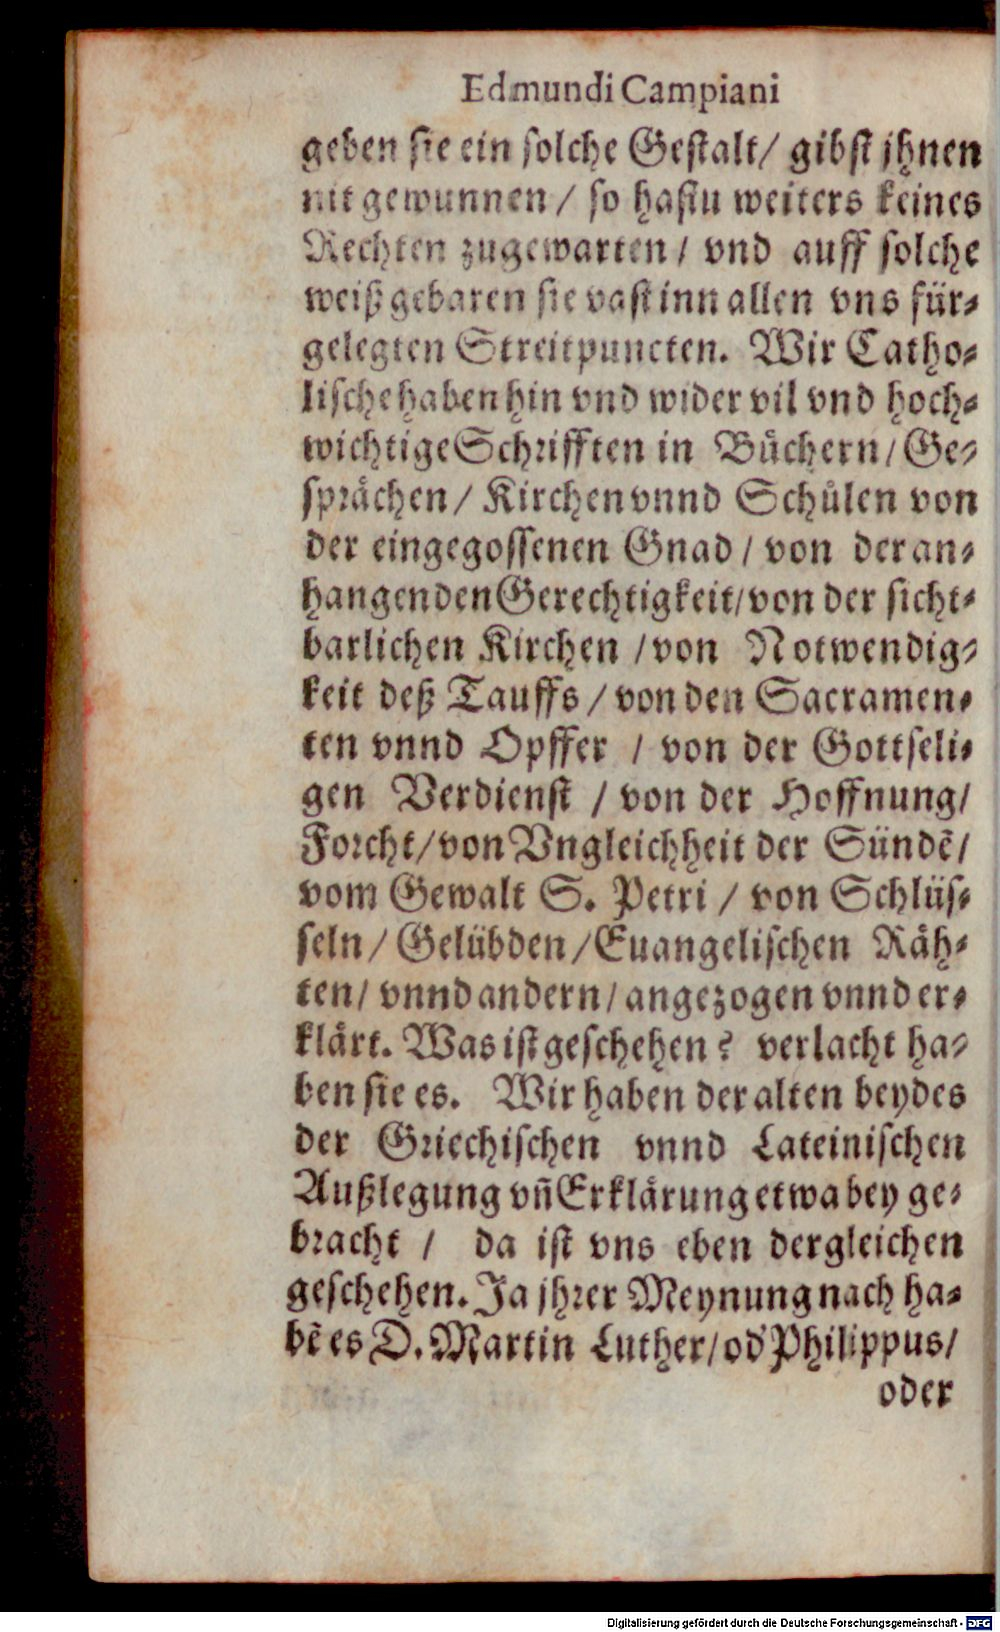 Edmundi Campiani
geben sie ein solche Gestalt/ gibst jhnen
nit gewunnen / so hastu weiters keines
Rechten zugewarten / vnd auff solche
weiß gebaren sie vast inn allen vns für-
gelegten Streitpuncten. Wir Catho-
lische haben hin vnd wider vil vnd hoch-
wichtige Schrifften in Bůchern/ Ge-
sprächen / Kirchen vnnd Schůlen von
der eingegossenen Gnad / von der an-
hangenden Gerechtigkeit/ von der sicht-
barlichen Kirchen / von Notwendig-
keit deß Tauffs / von den Sacramen-
ten vnnd Opffer / von der Gottseli-
gen Verdienst / von der Hoffnung/
Forcht/ von Vngleichheit der Sündẽ/
vom Gewalt S. Petri / von Schlüs-
seln / Gelübden / Euangelischen Räh-
ten/ vnnd andern/ angezogen vnnd er-
klärt. Was ist geschehen? verlacht ha-
ben sie es. Wir haben der alten beydes
der Griechischen vnnd Lateinischen
Außlegung vñ Erklärung etwa bey ge-
bracht / da ist vns eben dergleichen
geschehen. Ja jhrer Meynung nach ha-
bẽ es D. Martin Luther/ od' Philippus/
oder
Digitalisierung gefördert durch die Deutsche Forschungsgemeinschaft - DFG